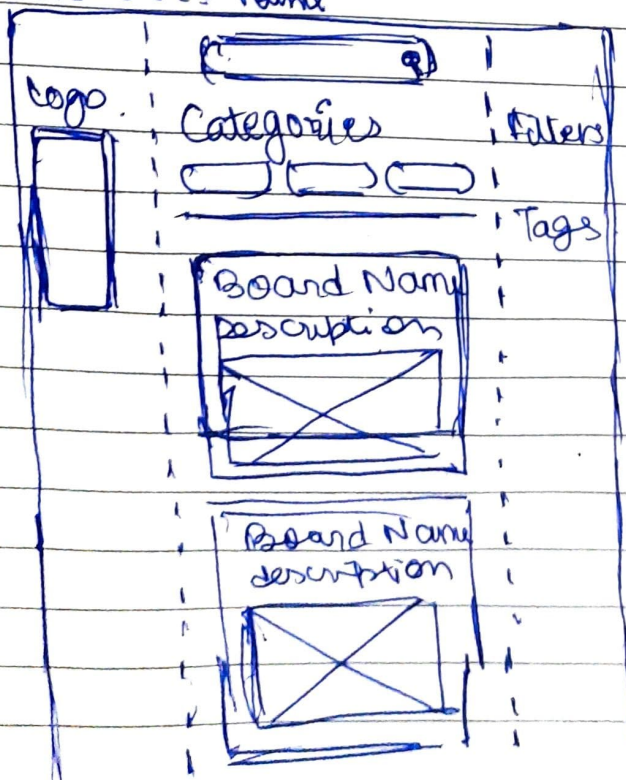 Name
Logo.
Categories
Filters
Tags
Board Name
Description
Board Name
description